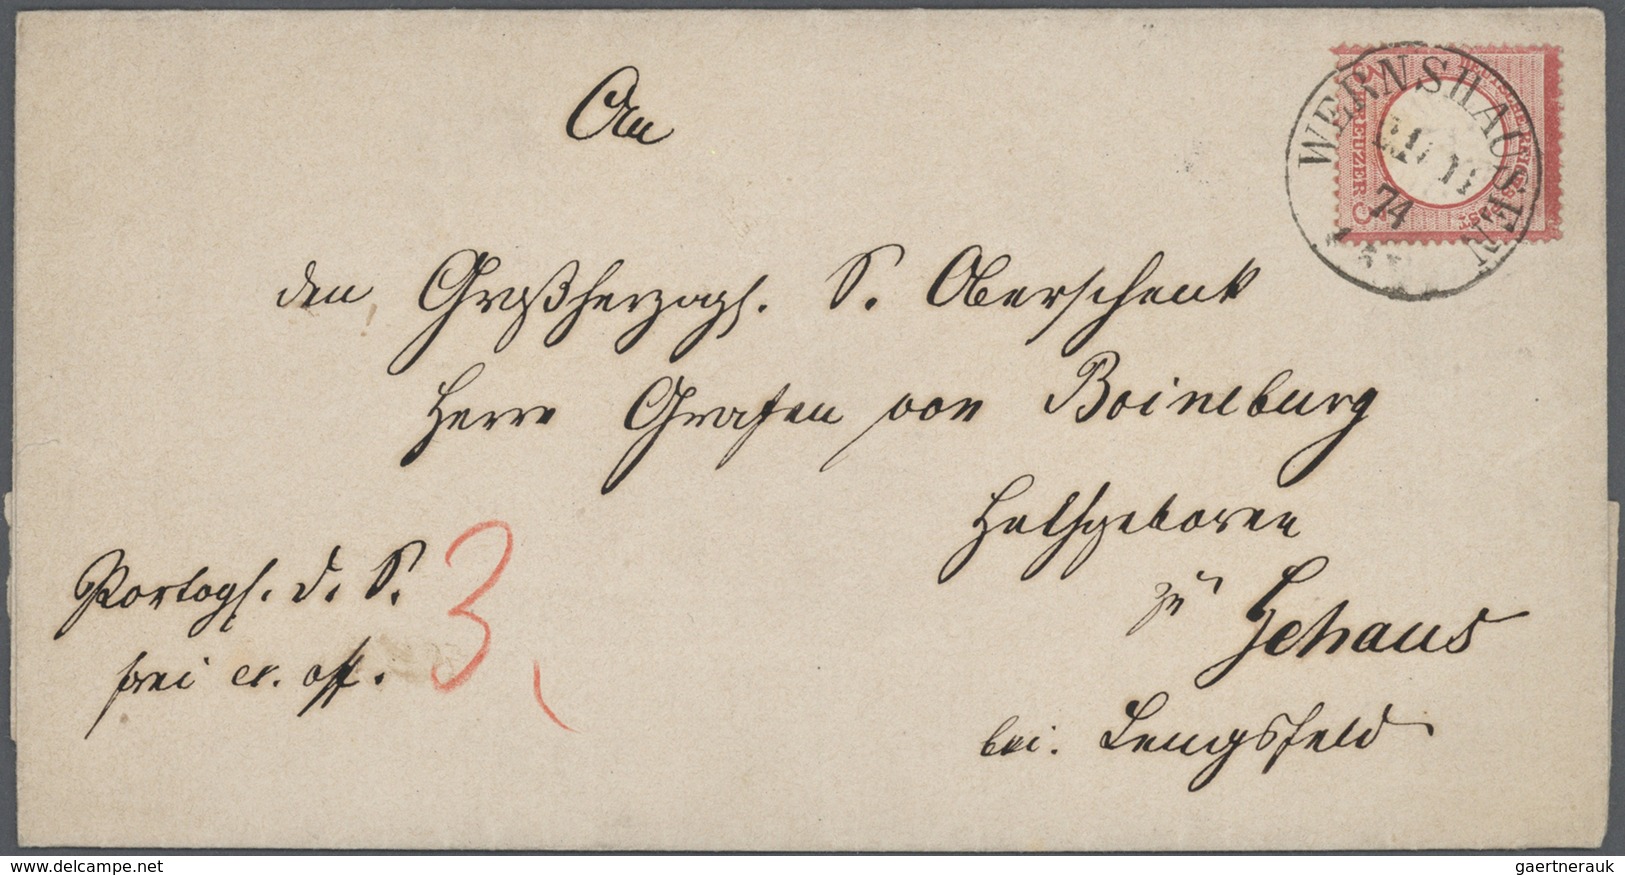 An
den Großherzogl. S. Oberschenk
Herrn Grafen von Boineburg
Hochgeboren
zu Gehaus
bei. Lengsfeld
Portopfl. d. S.
frei
3
WERNSHAUSEN
74
DEUTSCHE REICHS-POST
3 KREUZER 3
www.delcampe.net
gaertnerauk